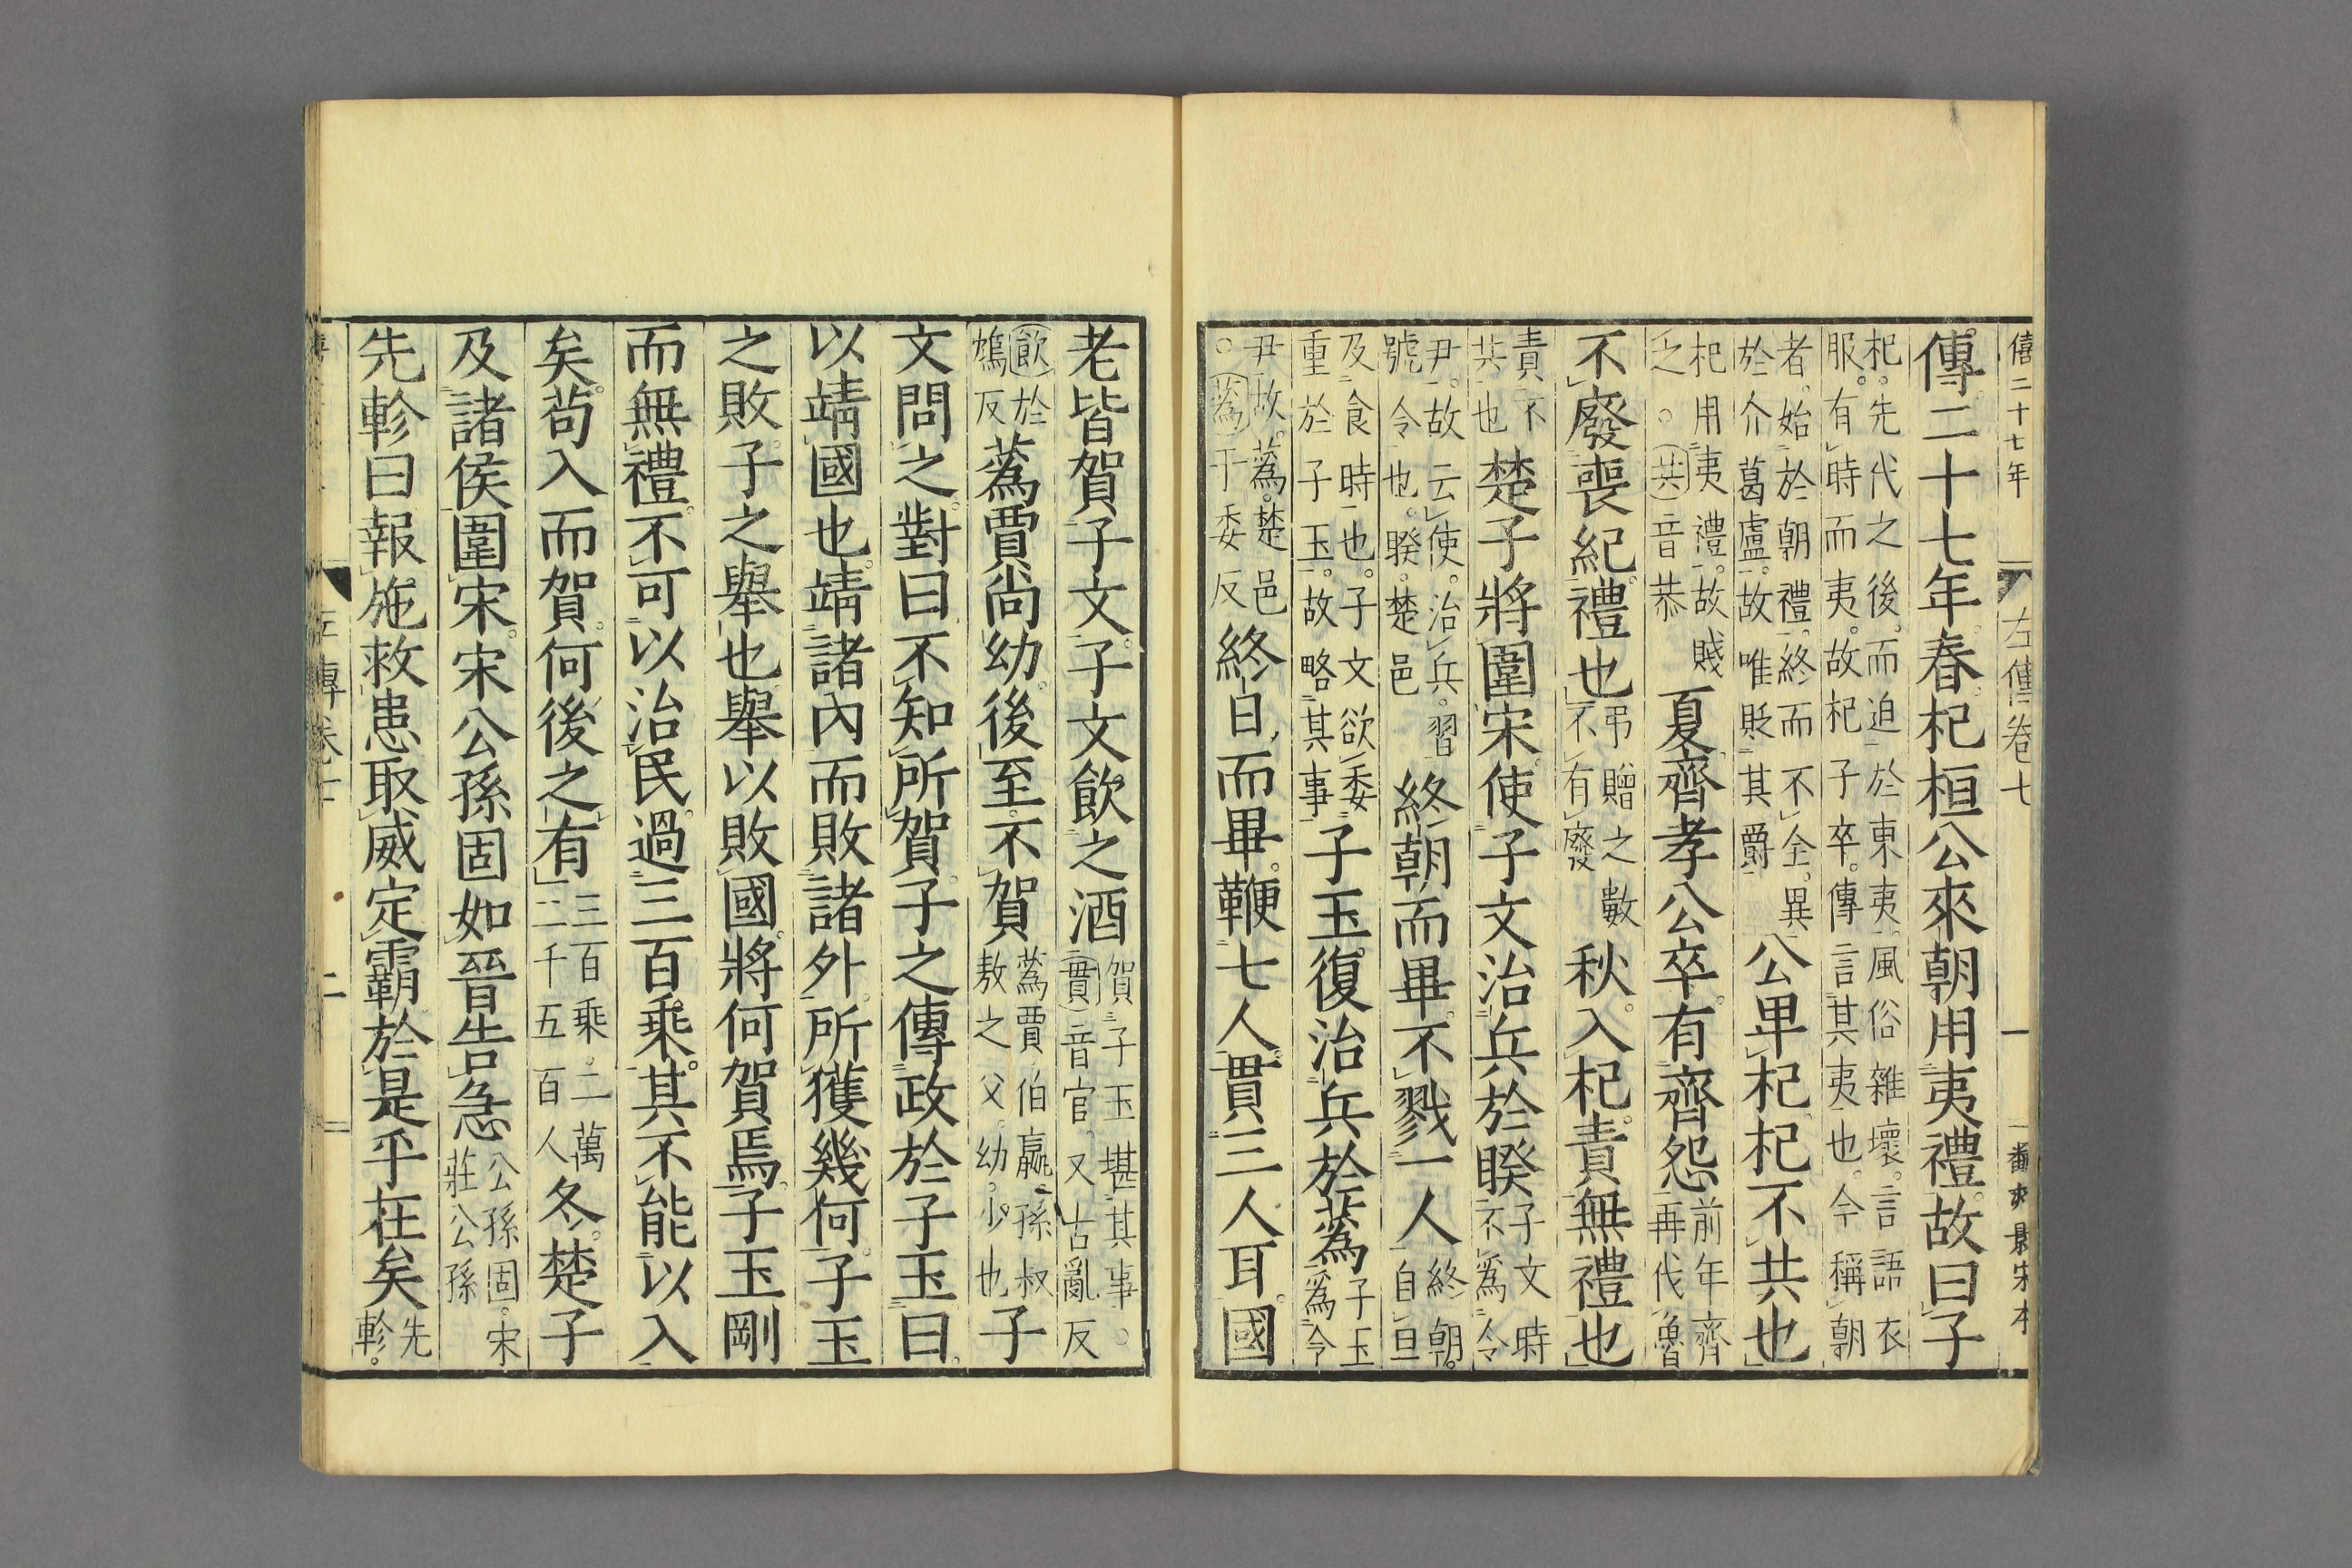 僖二十七年 左傳卷七 一 宋本
傳二十七年春杞桓公來朝用夷禮故曰子
杞先代之後而迫於東夷風俗雜壞言語衣
服有時而夷故杞子卒傳言其夷也今稱朝
者始於朝禮終而不全異
於介葛盧故唯貶其爵
公卑杞杞不共也
杞用夷禮故賤
之。共音恭
夏齊孝公卒有齊怨
前年齊
再伐魯
不廢喪紀禮也
弔贈之數
不有廢
秋入杞責無禮也
責不
共也
楚子將圍宋使子文治兵於睽
子文時
不為令
尹故云使治兵習
號令也睽楚邑
終朝而畢不戮一人
終朝
自旦
及食時也子文欲委
重於子玉故略其事
子玉復治兵於蒍
子玉
為令
尹故蒍楚邑
。蒍于委反
終日而畢鞭七人貫三人耳國
老皆賀子文子文飲之酒
賀子玉堪其事。
貫音官又古亂反
飲於
鴆反
蒍賈尚幼後至不賀
蒍賈伯嬴孫叔
敖之父幼少也
子
文問之對曰不知所賀子之傳政於子玉曰
以靖國也靖諸內而敗諸外所獲幾何子玉
之敗子之舉也舉以敗國將何賀焉子玉剛
而無禮不可以治民過三百乘其不能以入
矣苟入而賀何後之有
三百乘二萬
二千五百人
冬楚子
及諸侯圍宋宋公孫固如晉告急
公孫固宋
莊公孫
先軫曰報施救患取威定霸於是乎在矣
先
軫
二